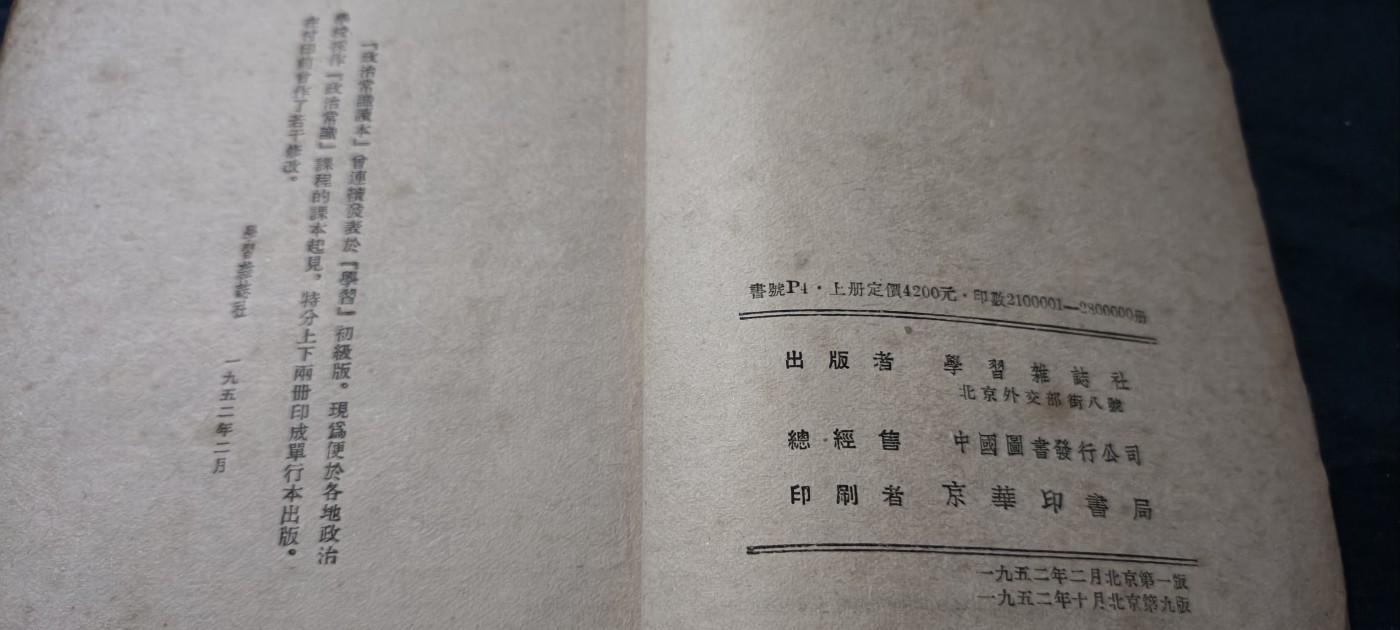 『政治常識讀本』曾連續發表於『學習』初級版。現爲便於各地政治
學校採作『政治常識』課程的課本起見，特分上下兩冊印成單行本出版。
在付印前曾作了若干修改。
學習雜誌社
一九五二年二月
書號P4·上册定價4200元·印數2100001—2800000册
出版者 學習雜誌社
北京外交部街八號
總經售 中國圖書發行公司
印刷者 京華印書局
一九五二年二月北京第一版
一九五二年十月北京第九版